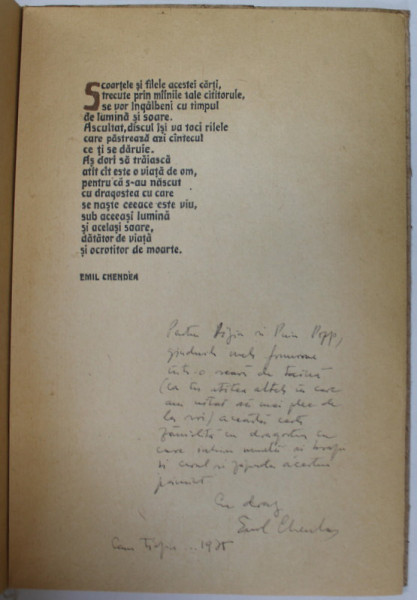 Scoarțele și filele acestei cărți,
trecute prin mîinile tale cititorule,
se vor îngălbeni cu timpul
de lumină și soare.
Ascultat, discul își va toci rilele
care păstrează azi cîntecul
ce ți se dăruie.
Aș dori să trăiască
atît cît este o viață de om,
pentru că s-au născut
cu dragostea cu care
se naște ceeace este viu,
sub aceeași lumină
și același soare,
dătător de viață
și ocrotitor de moarte.
EMIL CHENDEA
Pentru și Popp,
gîndurile mele frumoase
într-o seară de taină
(ca în atîtea altele în care
am uitat să mai plec de
la voi) această carte
zămislită cu dragostea cu
care
și cerul și acestui
pămînt
Cu drag
Emil Chendea
1975